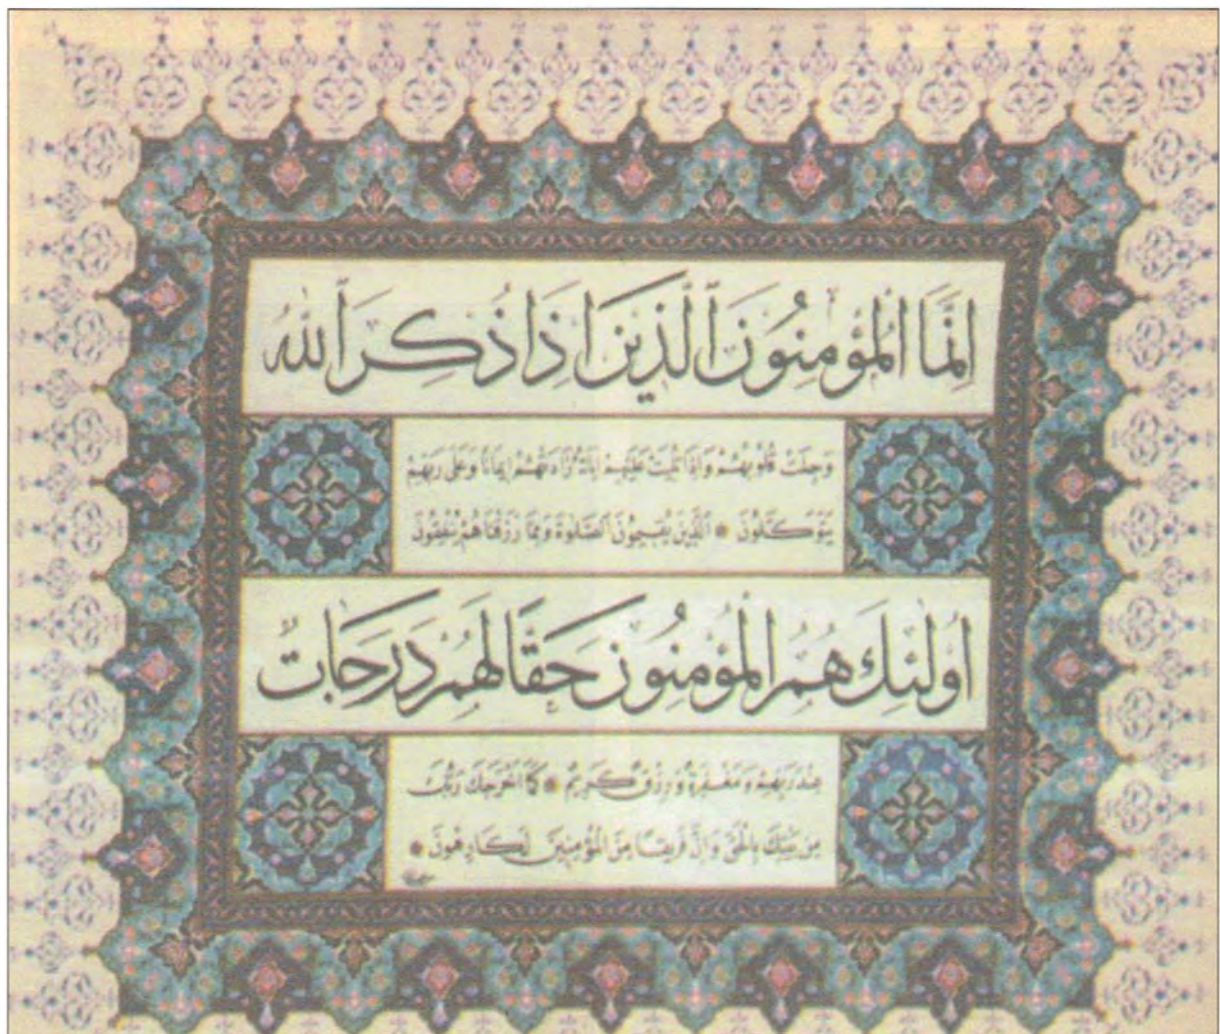 اِنَّمَا الْمُؤْمِنُونَ ٱلَّذِينَ اِذَا ذُكِرَ ٱللهُ
وَجِلَتْ قُلُوبُهُمْ وَاِذَا تُلِيَتْ عَلَيْهِمْ اٰيَاتُهُ زَادَتْهُمْ اِيمَانًا وَعَلٰى رَبِّهِمْ
يَتَوَكَّلُونَ * اَلَّذِينَ يُقِيمُونَ الصَّلٰوةَ وَمِمَّا رَزَقْنَاهُمْ يُنْفِقُونَ
اُولٰئِكَ هُمُ الْمُؤْمِنُونَ حَقًّا لَهُمْ دَرَجَاتٌ
عِنْدَ رَبِّهِمْ وَمَغْفِرَةٌ وَرِزْقٌ كَرِيمٌ * كَمَا اَخْرَجَكَ رَبُّكَ
مِنْ بَيْتِكَ بِالْحَقِّ وَاِنَّ فَرِيقًا مِنَ الْمُؤْمِنِينَ لَكَارِهُونَ *